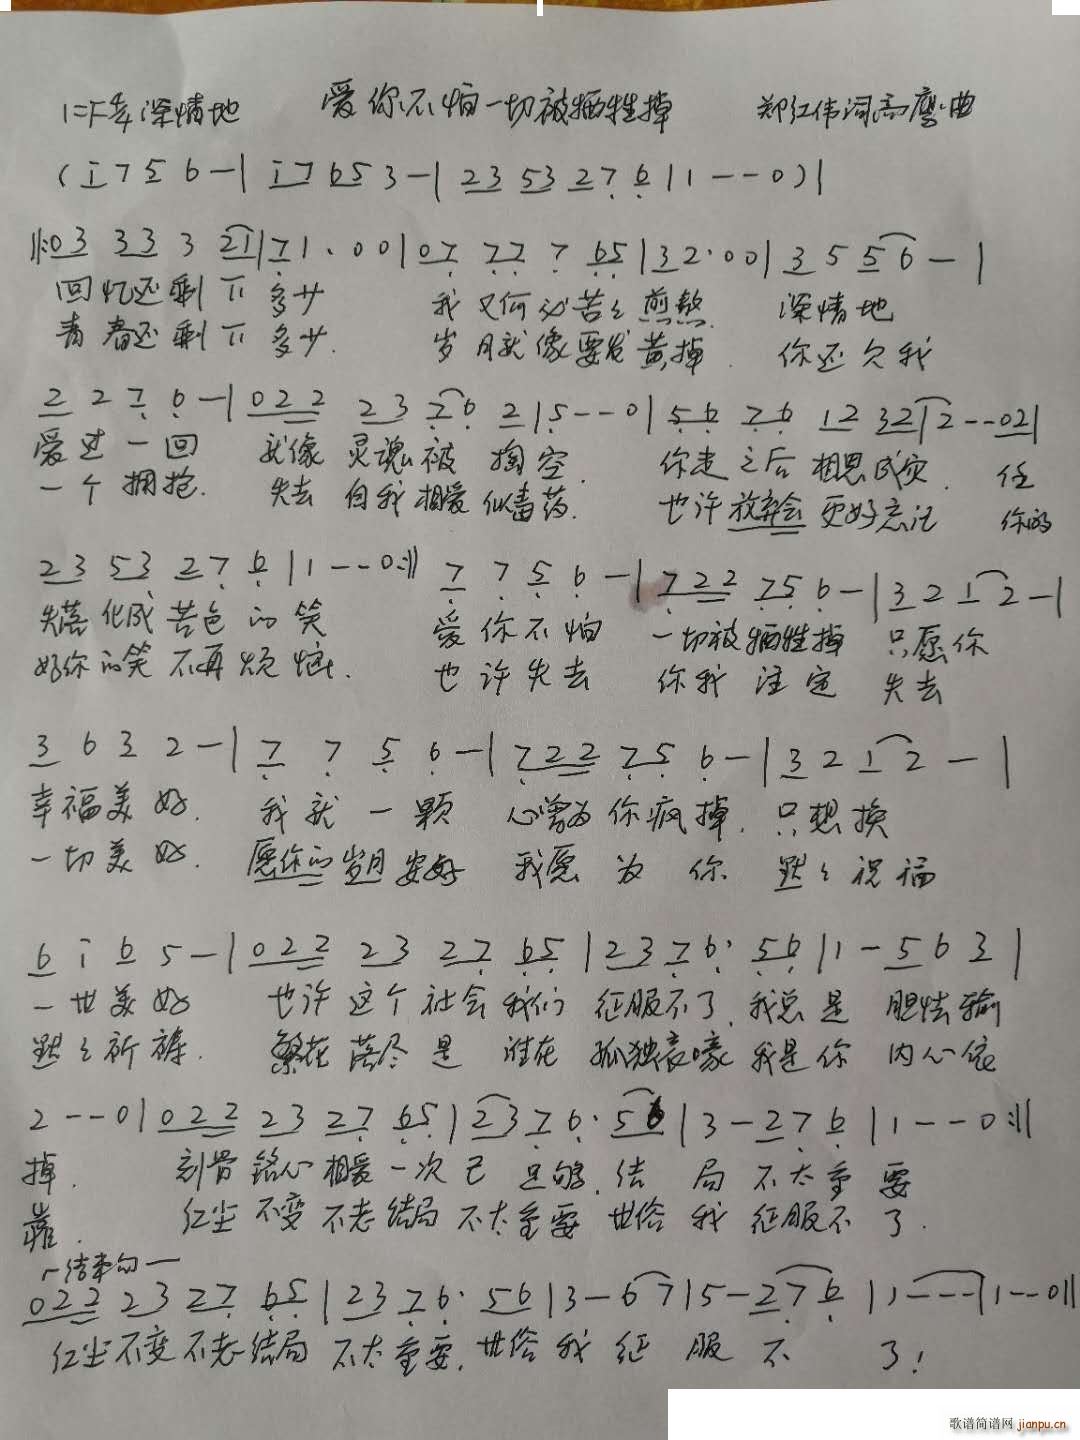 1=F 4/4 深情地 爱你不怕一切被牺牲掉 郑红伟词高鹰曲
(i 7 5 6 - | i 7 6 5 3 - | 2 3 5 3 2 7 6 | 1 - - - 0 ) |
‖: 0 3 3 3 3 2 1 | 7 1 · 0 0 | 0 7 7 7 7 6 5 | 3 2 · 0 0 | 3 5 5 6 - |
回忆还剩下多少 我又何必苦々煎熬 深情地
青春还剩下多少. 岁月就像要发黄掉. 你还欠我
2 2 7 6 - | 0 2 2 2 3 7 6 2 | 5 - - - 0 | 5 6 7 6 1 2 3 2 1 | 2 - - - 0 2 |
爱过一回 就像灵魂被掏空. 你走之后相思成灾. 任
一个拥抱. 失去自我相爱似毒药. 也许放弃会更好忘记 你的
2 3 5 3 2 7 6 | 1 - - - 0 :‖ 7 7 5 6 - | 7 2 2 7 5 6 - | 3 2 1 2 - |
失落化成苦色的笑 爱你不怕 一切被牺牲掉 只愿你
好你的笑不再烦恼. 也许失去 你我注定 失去
3 6 3 2 - | 7 7 5 6 - | 7 2 2 7 5 6 - | 3 2 1 2 - |
幸福美好. 我就一颗 心曾为你疯掉. 只想换
一切美好. 愿你的岁月安好 我愿为你 默々祝福
6 i 6 5 - | 0 2 2 2 3 2 7 6 5 | 2 3 7 6 · 5 6 | 1 - 5 6 3 |
一世美好 也许这个社会我们征服不了. 我总是 胆怯输
默々祈祷. 繁花落尽是谁在孤独哀嚎 我是你 内心依
2 - - - 0 | 0 2 2 2 3 2 7 6 5 | 2 3 7 6 · 5 6 | 3 - 2 7 6 | 1 - - - 0 :‖
掉. 刻骨铭心相爱一次已足够. 结局不太重要
靠. 红尘不变不老结局不太重要 世俗我征服不了.
┌结束句—
0 2 2 2 3 2 7 6 5 | 2 3 7 6 · 5 6 | 3 - 6 7 | 5 - 2 7 6 | 1 - - - | 1 - - 0 ‖
红尘不变不老结局 不太重要. 世俗我征服不了!
歌谱简谱网 jianpu.cn